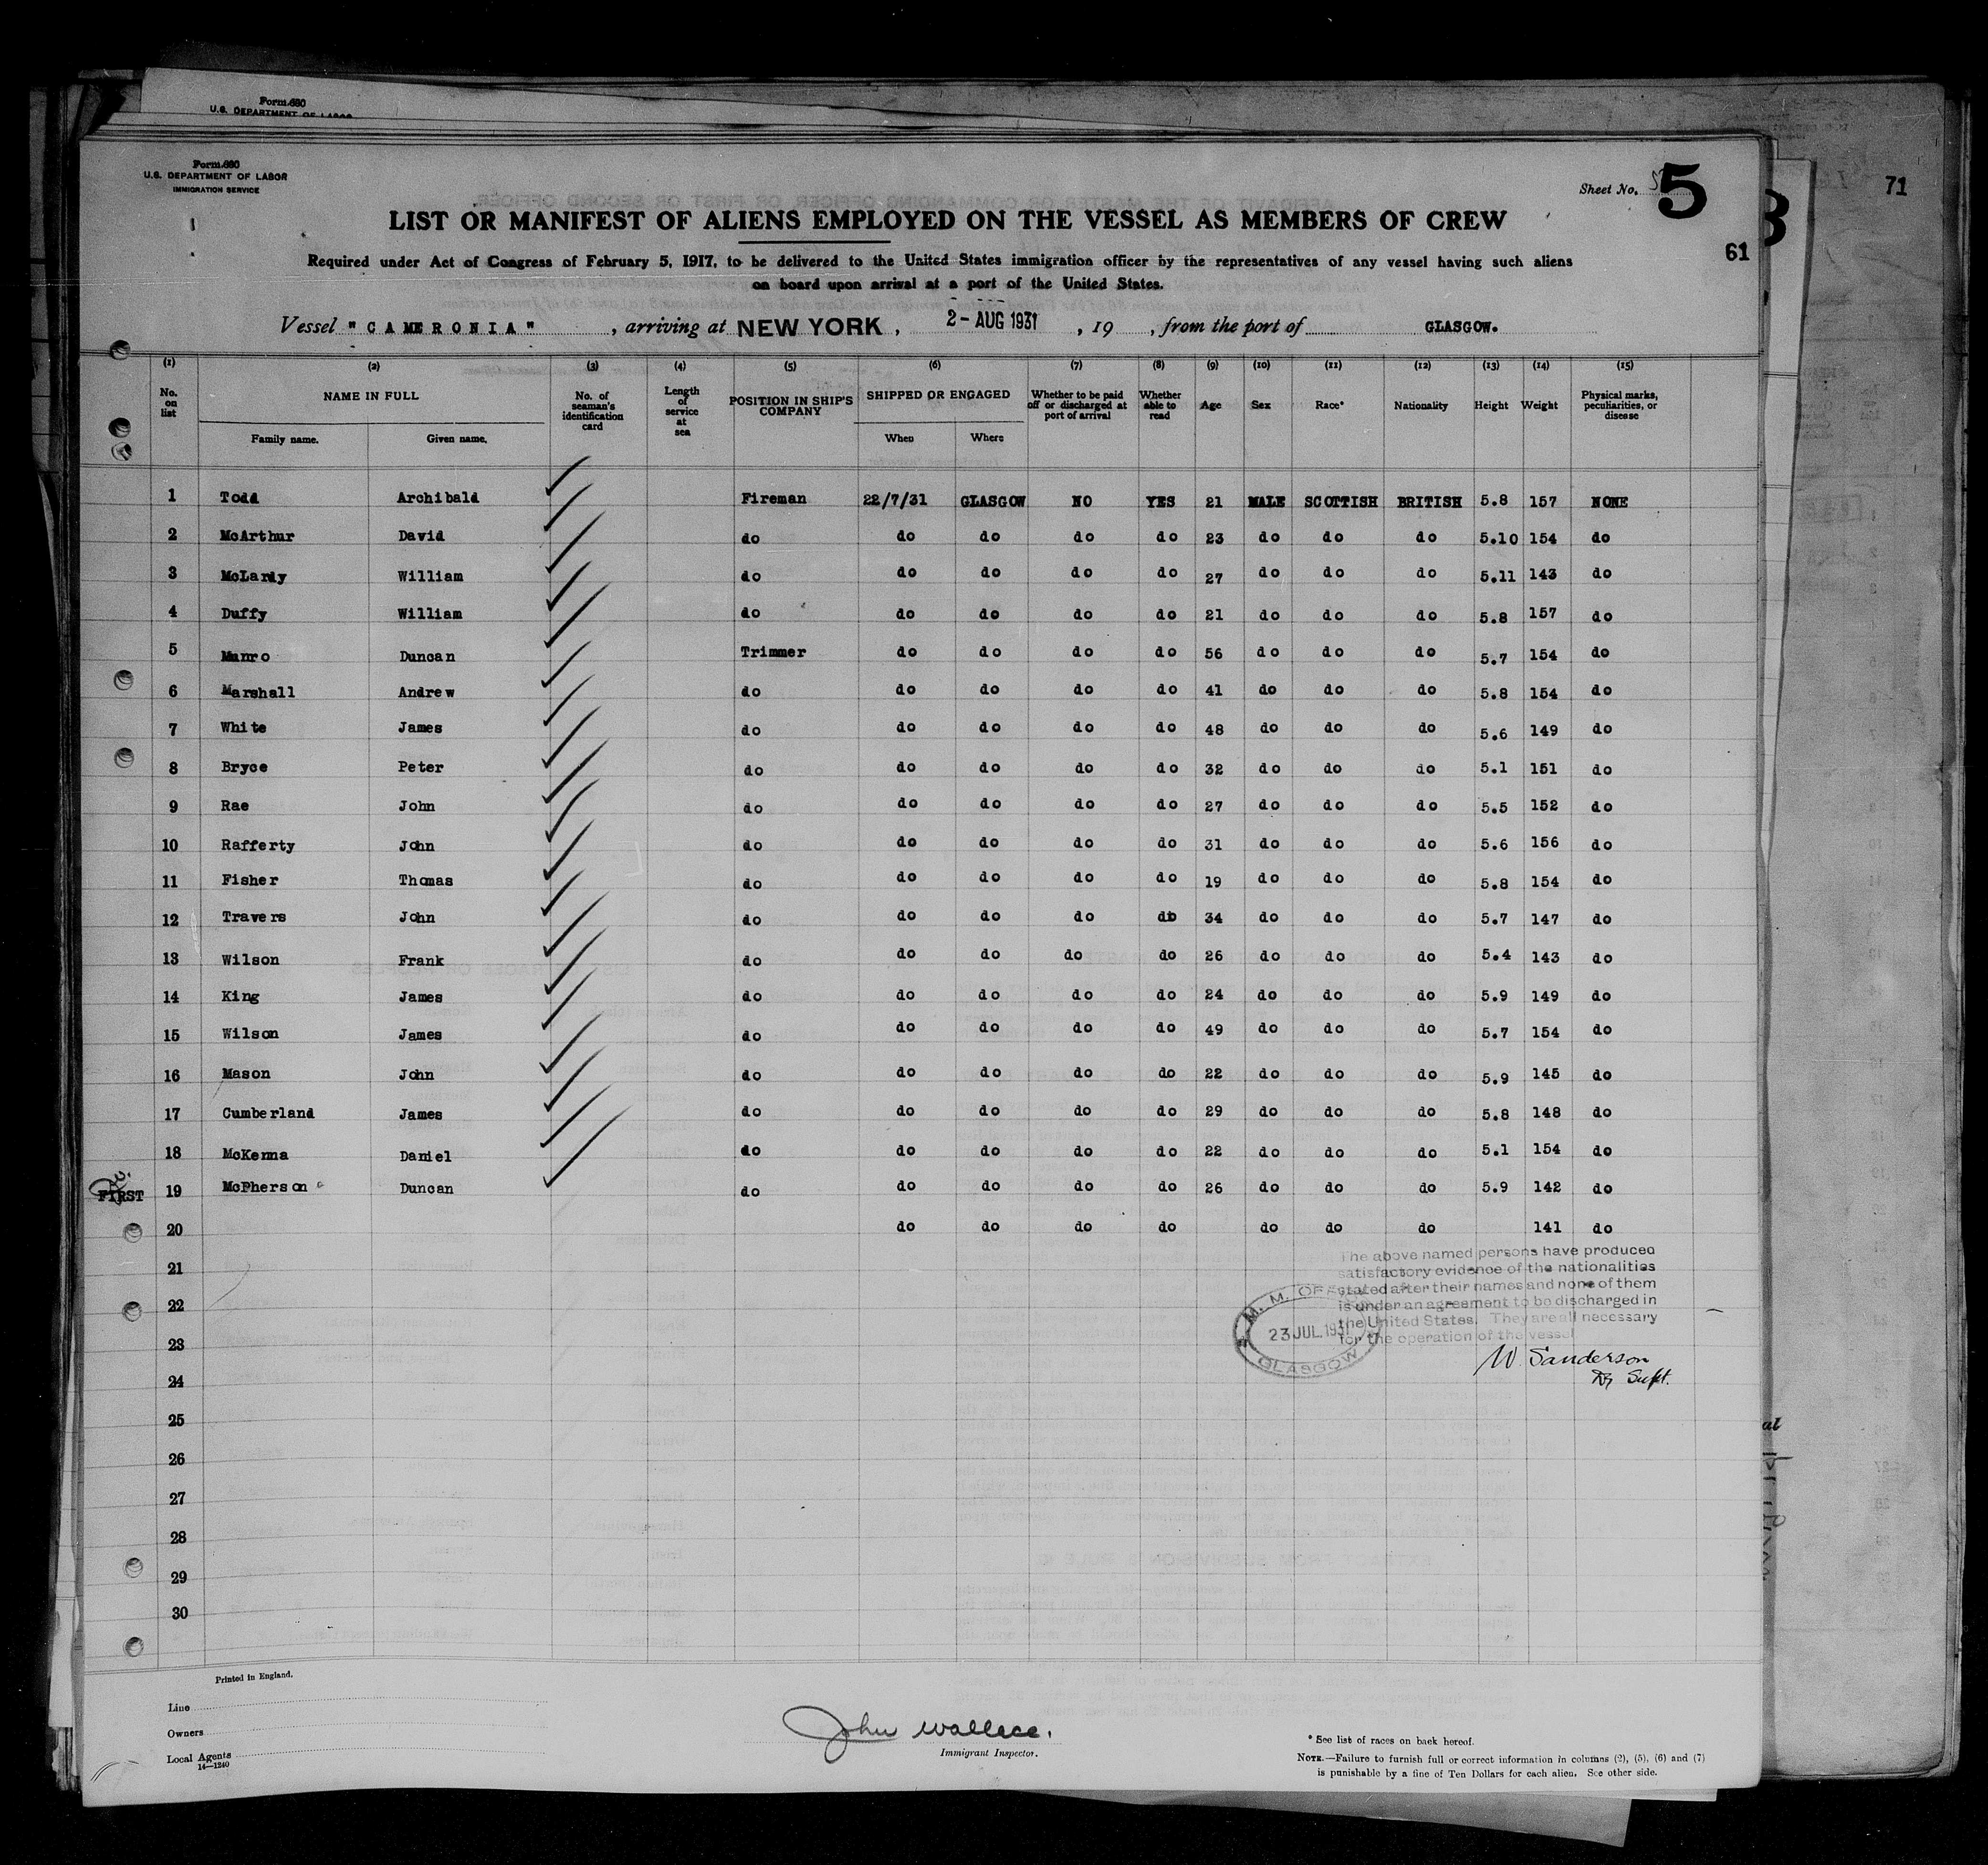 Form 680
U.S. DEPARTMENT OF LABOR
Form 680
U.S. DEPARTMENT OF LABOR
IMMIGRATION SERVICE
Sheet No. 5
5
71
61
LIST OR MANIFEST OF ALIENS EMPLOYED ON THE VESSEL AS MEMBERS OF CREW
Required under Act of Congress of February 5, 1917, to be delivered to the United States immigration officer by the representatives of any vessel having such aliens
on board upon arrival at a port of the United States.
Vessel "CAMERONIA", arriving at NEW YORK, 2- AUG 1931, 19 , from the port of GLASGOW.
(1) (2) (3) (4) (5) (6) (7) (8) (9) (10) (11) (12) (13) (14) (15)
No. on list NAME IN FULL No. of seaman's identification card Length of service at sea POSITION IN SHIP'S COMPANY SHIPPED OR ENGAGED Whether to be paid off or discharged at port of arrival Whether able to read Age Sex Race* Nationality Height Weight Physical marks, peculiarities, or disease
Family name. Given name. When Where
1 Todd Archibald Fireman 22/7/31 GLASGOW NO YES 21 MALE SCOTTISH BRITISH 5.8 157 NONE
2 McArthur David do do do do do 23 do do do 5.10 154 do
3 McLardy William do do do do do 27 do do do 5.11 143 do
4 Duffy William do do do do do 21 do do do 5.8 157 do
5 Munro Duncan Trimmer do do do do 56 do do do 5.7 154 do
6 Marshall Andrew do do do do do 41 do do do 5.8 154 do
7 White James do do do do do 48 do do do 5.6 149 do
8 Bryce Peter do do do do do 32 do do do 5.1 151 do
9 Rae John do do do do do 27 do do do 5.5 152 do
10 Rafferty John do do do do do 31 do do do 5.6 156 do
11 Fisher Thomas do do do do do 19 do do do 5.8 154 do
12 Travers John do do do do do 34 do do do 5.7 147 do
13 Wilson Frank do do do do do 26 do do do 5.4 143 do
14 King James do do do do do 24 do do do 5.9 149 do
15 Wilson James do do do do do 49 do do do 5.7 154 do
16 Mason John do do do do do 22 do do do 5.9 145 do
17 Cumberland James do do do do do 29 do do do 5.8 148 do
18 McKenna Daniel do do do do do 22 do do do 5.1 154 do
FIRST 19 McPherson Duncan do do do do do 26 do do do 5.9 142 do
20 do do do do do do do 141 do
21
22
23
24
25
26
27
28
29
30
The above named persons have produced
satisfactory evidence of the nationalities
stated after their names and none of them
is under an agreement to be discharged in
the United States. They are all necessary
for the operation of the vessel
M. M. OFFICE
23 JUL.1931
GLASGOW
W. Sanderson
Supt.
Printed in England.
Line
Owners
Local Agents
14—1240
John Wallace.
Immigrant Inspector.
* See list of races on back hereof.
NOTE.—Failure to furnish full or correct information in columns (2), (5), (6) and (7)
is punishable by a fine of Ten Dollars for each alien. See other side.